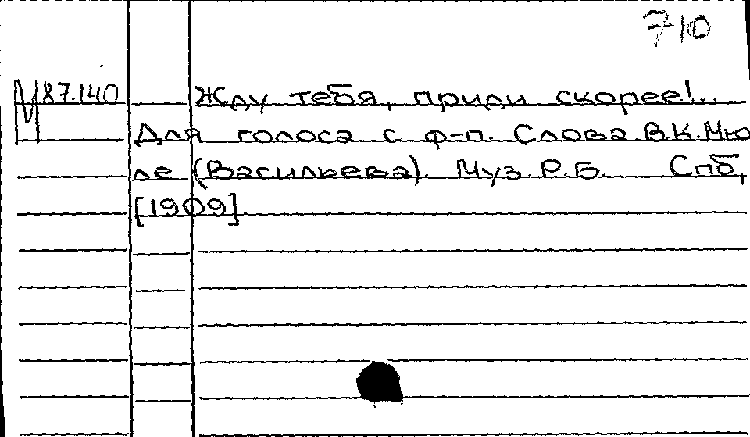 710
М 87.140 Жду тебя, приди скорее!..
Для голоса с ф-п. Слова В.К. Мю
ле (Васильева). Муз. Р.Б. Спб,
[1909].